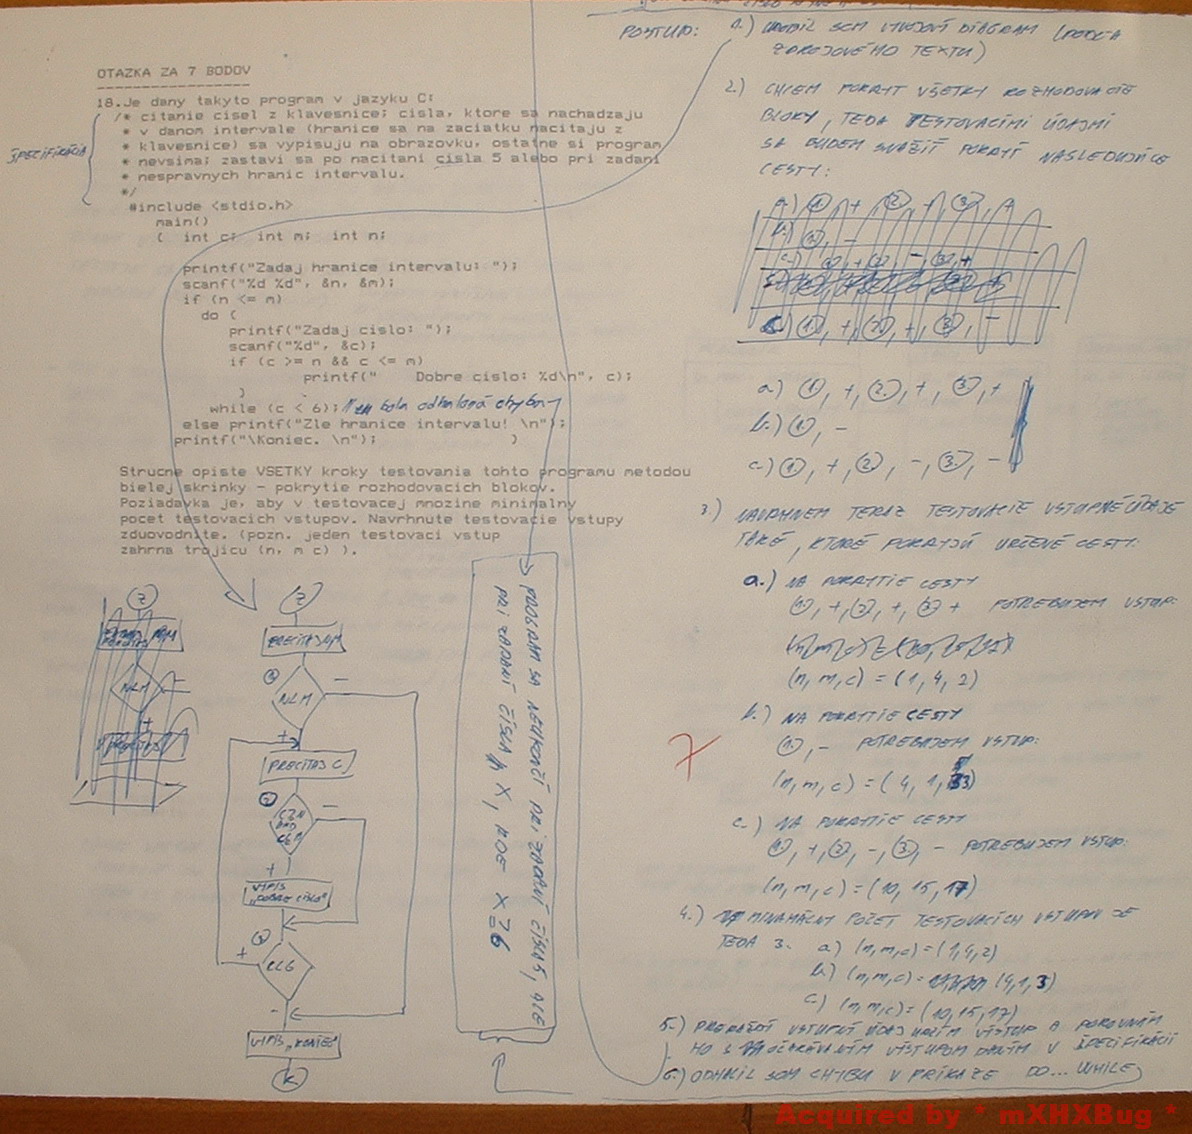 OTAZKA ZA 7 BODOV
18.Je dany takyto program v jazyku C:
/* citanie cisel z klavesnice; cisla, ktore sa nachadzaju
* v danom intervale (hranice sa na zaciatku nacitaju z
* klavesnice) sa vypisuju na obrazovku, ostatne si program
* nevsima; zastavi sa po nacitani cisla 5 alebo pri zadani
* nespravnych hranic intervalu.
*/
ŠPECIFIKÁCIA
#include <stdio.h>
main()
{ int c; int m; int n;
printf("Zadaj hranice intervalu: ");
scanf("%d %d", &n, &m);
if (n <= m)
do {
printf("Zadaj cislo: ");
scanf("%d", &c);
if (c >= n && c <= m)
printf("    Dobre cislo: %d\n", c);
}
while (c < 6); bola odhalená chyba
else printf("Zle hranice intervalu! \n");
printf("\Koniec. \n"); }
Strucne opiste VSETKY kroky testovania tohto programu metodou
bielej skrinky - pokrytie rozhodovacich blokov.
Poziadavka je, aby v testovacej mnozine minimalny
pocet testovacich vstupov. Navrhnute testovacie vstupy
zduovodnite. (pozn. jeden testovaci vstup
zahrna trojicu (n, m c) ).
Z
Z
PRECITAJ N,M
1
N≤M
-
+
PRECITAJ C
2
C≥N
AND
C≤M
-
+
VYPIS
"DOBRE CISLO"
3
+
C<6
-
VYPIS "KONIEC"
K
PROGRAM SA NEUKONČÍ PRI ZADANÍ ČÍSLA 5, ALE
PRI ZADANÍ ČÍSLA X, KDE X≥6
POSTUP: 1.) UROBIL SOM VÝVOJOVÝ DIAGRAM (PODĽA
ZDROJOVÉHO TEXTU)
2.) CHCEM POKRYŤ VŠETKY ROZHODOVACIE
BLOKY, TEDA TESTOVACÍMI ÚDAJMI
SA BUDEM SNAŽIŤ POKRYŤ NASLEDUJÚCE
CESTY:
a.) 1., +, 2., +, 3., +
b.) 1., -
c.) 1., +, 2., -, 3., -
3.) NAVRHNEM TERAZ TESTOVACIE VSTUPNÉ ÚDAJE
TAKÉ, KTORÉ POKRYJÚ URČENÉ CESTY:
a.) NA POKRYTIE CESTY
1., +, 2., +, 3., + POTREBUJEM VSTUP:
(n, m, c) = (1, 4, 2)
b.) NA POKRYTIE CESTY
1., - POTREBUJEM VSTUP:
(n, m, c) = (4, 1, 3)
c.) NA POKRYTIE CESTY
1., +, 2., -, 3., - POTREBUJEM VSTUP:
(n, m, c) = (10, 15, 17)
7
4.) MINIMÁLNY POČET TESTOVACÍCH VSTUPOV JE
TEDA 3. a) (n,m,c) = (1,4,2)
b.) (n,m,c) = (4,1,3)
c) (n,m,c) = (10,15,17)
5.) PRE KAŽDÝ VSTUPNÝ ÚDAJ URČÍM VÝSTUP A POROVNÁM
HO S OČAKÁVANÝM VÝSTUPOM DANÝM V ŠPECIFIKÁCII
6.) ODHALIL SOM CHYBU V PRÍKAZE DO... WHILE
Acquired by * mXHXBug *